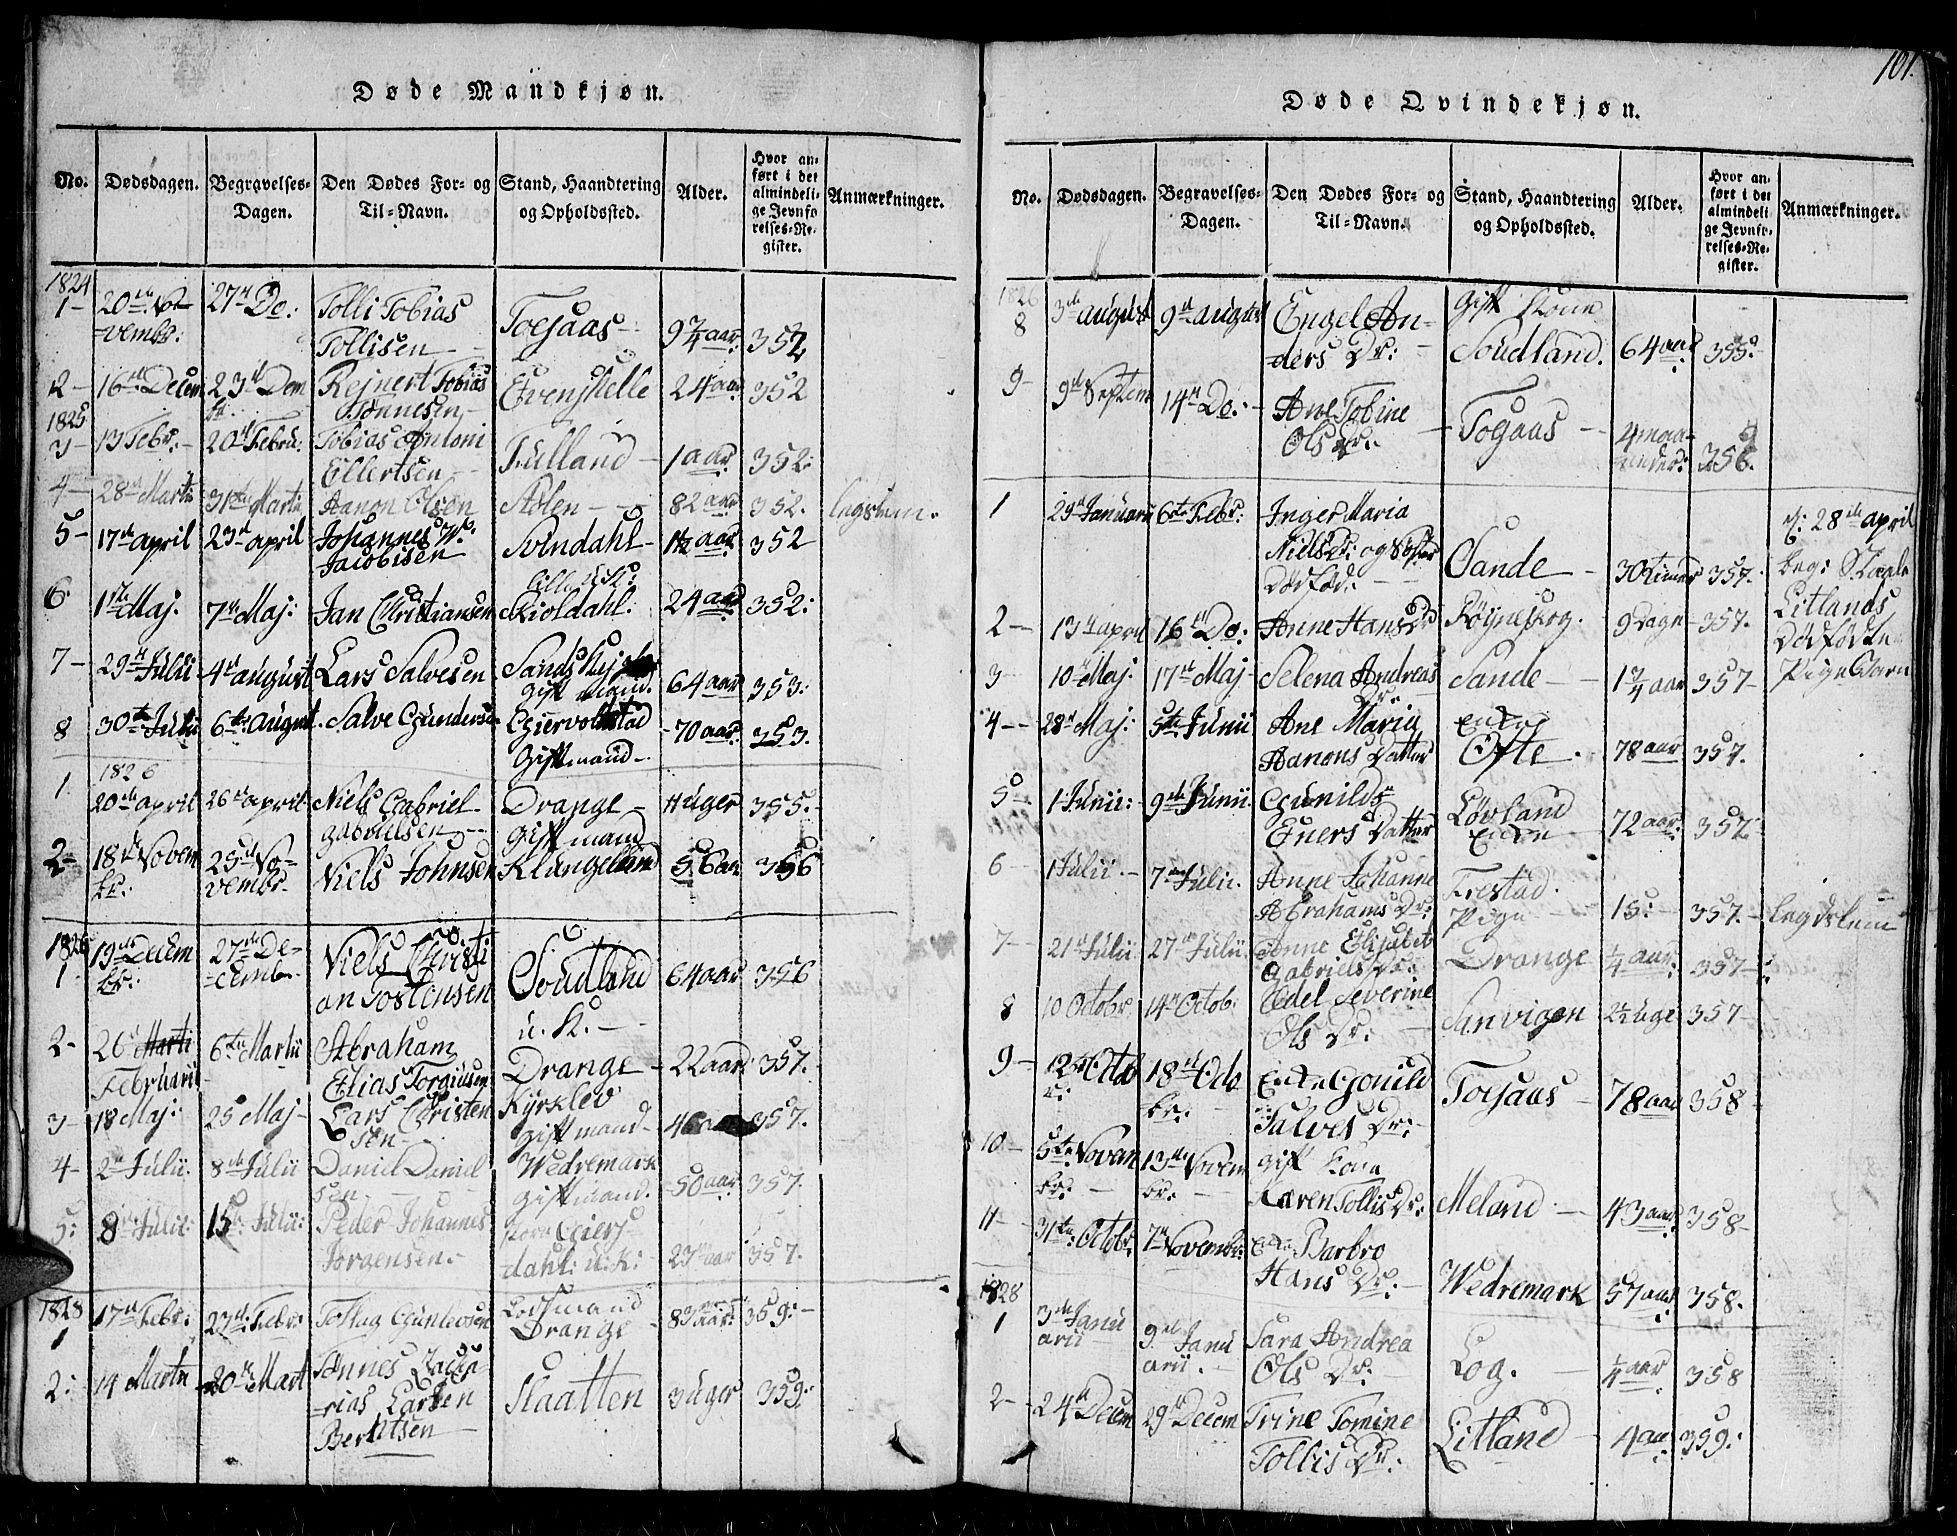 Døde Mandkjøn.
No. Dødsdagen. Begravelses-Dagen. Den Dødes For- og Til-Navn. Stand, Haandtering og Opholdssted. Alder. Hvor anført i det almindelige Jevnførelses-Register. Anmærkninger.
1824
1- 20de No- 27de Do: Tolli Tobias Toejaas-
vembr: Tollisen 9 3/4 aar. 352
2- 16de Decem 23de Decem Rejnert Tobias 24 aar 352
br. Tønnesen-
1825
3- 13 Febr:- 20de Febru: Tobias Antoni Fulland- 1 aar 352:
Ellertsen-
4- 28de Martii 31te Martii Aanon Olsen Stølen- 82 aar 352.
5- 17de april 23de april Johannes Svindahl- 352
Jacobisen
6. 1ste Maj. 7de Maj: Jan Christiansen Skioldahl: 24 aar 352:
7- 29de Julii 4de august Lars Salvesen
gift mand. 64 aar 353:
8 30te Julii 6te august. Salve Gundersen
Gift mand- 70 aar. 353.
1826
1 20de april 26de april Niels Gabriel Drange- 11 uger 355.-
gabrielsen-- gift mand
2- 18de Novem 25de No- Niels Johnsen Klungeland 56 aar 356
br.: vembr-
1826
1. 19de Decem 27de De- Niels Christi Soudland 64 aar 356
br: -cembr- an Tostensen u. K.-
2- 26de Marti 6te Martii Abraham Drange- 22 aar 357.
Februari Elias Torgiusen
3- 18 Maj: 25 Maj- Lars Christen Kyrklev 357.
sen- gift mand-
4- 2de Julii: 8de Julii Daniel Daniel Wedremark 50 aar 357.
sen gift mand.
5: 8de Julii: 15de Julii: Peder Johannes
Jørgensen.- dahl: u. K: 23 aar 357.
1828
1 17de Febr: 23de Febr: Tollag Gunlevsen 83 aar: 359:-
Drange-
2: 14 Martii 20de Mart Tønnes Zacha Slaatten 3 uger 359:
-rias Larsen
Berntsen
101.
Døde Qvindekjøn.
No. Dødsdagen. Begravelses-Dagen. Den Dødes For- og Til-Navn. Stand, Haandtering og Opholdssted. Alder. Hvor anført i det almindelige Jevnførelses-Register. Anmærkninger.
1826
8 3de august 9de august Engel An- Gift Kone
ders Dr: Soudland. 64 aar 355.-
9- 9de Septem 14de Do:- Ane Tobine Toejaas 4 maa-
Ols Dr:. neder: 356.
1 29de Januarii 6te Febr: Inger Maria 28de april
Niels Dr: og Søster Sande 30 timer 357.
Dødfød.
Litlands
Dødfødte
Pigebarn
2- 13de april 16de Do: Anne Hans Dr Røyneskog. 9 Dage 357.
3- 10de Maj. 17de Maj- Selena Andreas Sande- 1 3/4 aar 357-
Dr.
4- 28de Maj: 5te Junii Ane Maria Enke
Aanons Datter Ofte. 78 aar 357.
5- 1 Junii: 9de Junii Gunilds Løvland
Eners Datter Enke 72 aar: 357.-
6- 1 Julii.- 7de Julii. Anne Johanne Frestad.
Abrahams Dr: Pige 15:- 357.-
7- 21de Julii 27de Julii Anne Elisabet Drange 1/4 aar. 357-
Gabriels Dr:
8 10 Octobr. 14de Octob: Edel Severine Sanvigen 2 1/2 uge 357
Ols Dr:-
9- 12te Octob 18de Octo Enke Gonild Toejaas- 78 aar 358-
r. br:- Salves Dr:-
10- 5te Novem 13de Novem gift Kone
br: br.- Karen Tollis Dr: Meland 43 aar 358-
11- 31te Octobr. 7de Novembr: Enke Barbro
Hans Dr:- Wedremark 57 aar 358.
1828
1 3de Janu 9de Janu Sara Andrea
arii arii.- Ols Dr:- Log. 1/4 aar 358
2- 24de Decem 29de Decem Trine Tomine Litland 4 aar 359:
Tollis Dr: